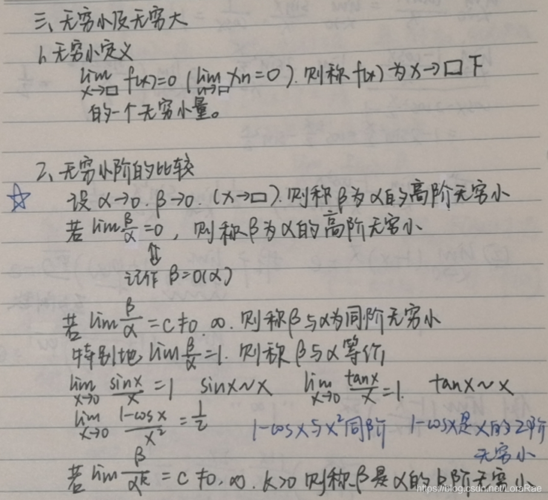 三、无穷小及无穷大
1、无穷小定义
lim x→□ f(x)=0 (lim n→□ xn=0). 则称 f(x) 为 x→□ 下
的一个无穷小量。
2、无穷小阶的比较
☆ 设 α→0. β→0. (x→□). 则称 β 为 α 的高阶无穷小
若 lim β/α =0, 则称 β 为 α 的高阶无穷小
⇕
记作 β=o(α)
若 lim β/α = c≠0, ∞. 则称 β 与 α 为同阶无穷小
特别地 lim β/α =1. 则称 β 与 α 等价
lim x→0 sinx/x =1 sinx~x lim x→0 tanx/x =1. tanx~x
lim x→0 1-cosx/x² = 1/2 1-cosx与x²同阶 1-cosx是x的2阶
无穷小
若 lim β/αᵏ = c≠0, ∞. k>0 则称 β 是 α 的 k 阶无穷小